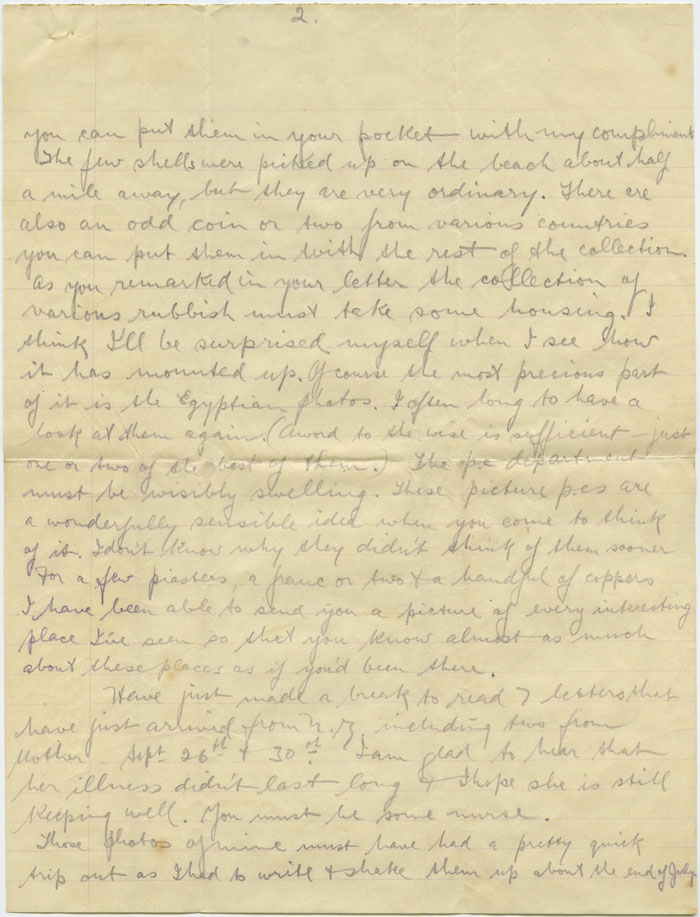 2.
you can put them in your pocket with my compliments
The few shells were picked up on the beach about half
a mile away, but they are very ordinary. There are
also an odd coin or two from various countries
you can put them in with the rest of the collection.
As you remarked in your letter the collection of
various rubbish must take some housing. I
think I'll be surprised myself when I see how
it has mounted up. Of course the most precious part
of it is the Egyptian photos. I often long to have a
look at them again. (A word to the wise is sufficient - just
one or two of the best of them.) The p.c department
must be visibly swelling. These picture p.cs are
a wonderfully sensible idea when you come to think
of it. I don't know why they didn't think of them sooner
For a few piasters, a franc or two & a handful of coppers
I have been able to send you a picture of every interesting
place I've seen so that you know almost as much
about these places as if you'd been there.
Have just made a break to read 7 letters that
have just arrived from N.Z. including two from
Mother - Sept 26th & 30th. I am glad to hear that
her illness didn't last long & I hope she is still
keeping well. You must be some nurse.
Those photos of mine must have had a pretty quick
trip out as I had to write & shake them up about the end of July